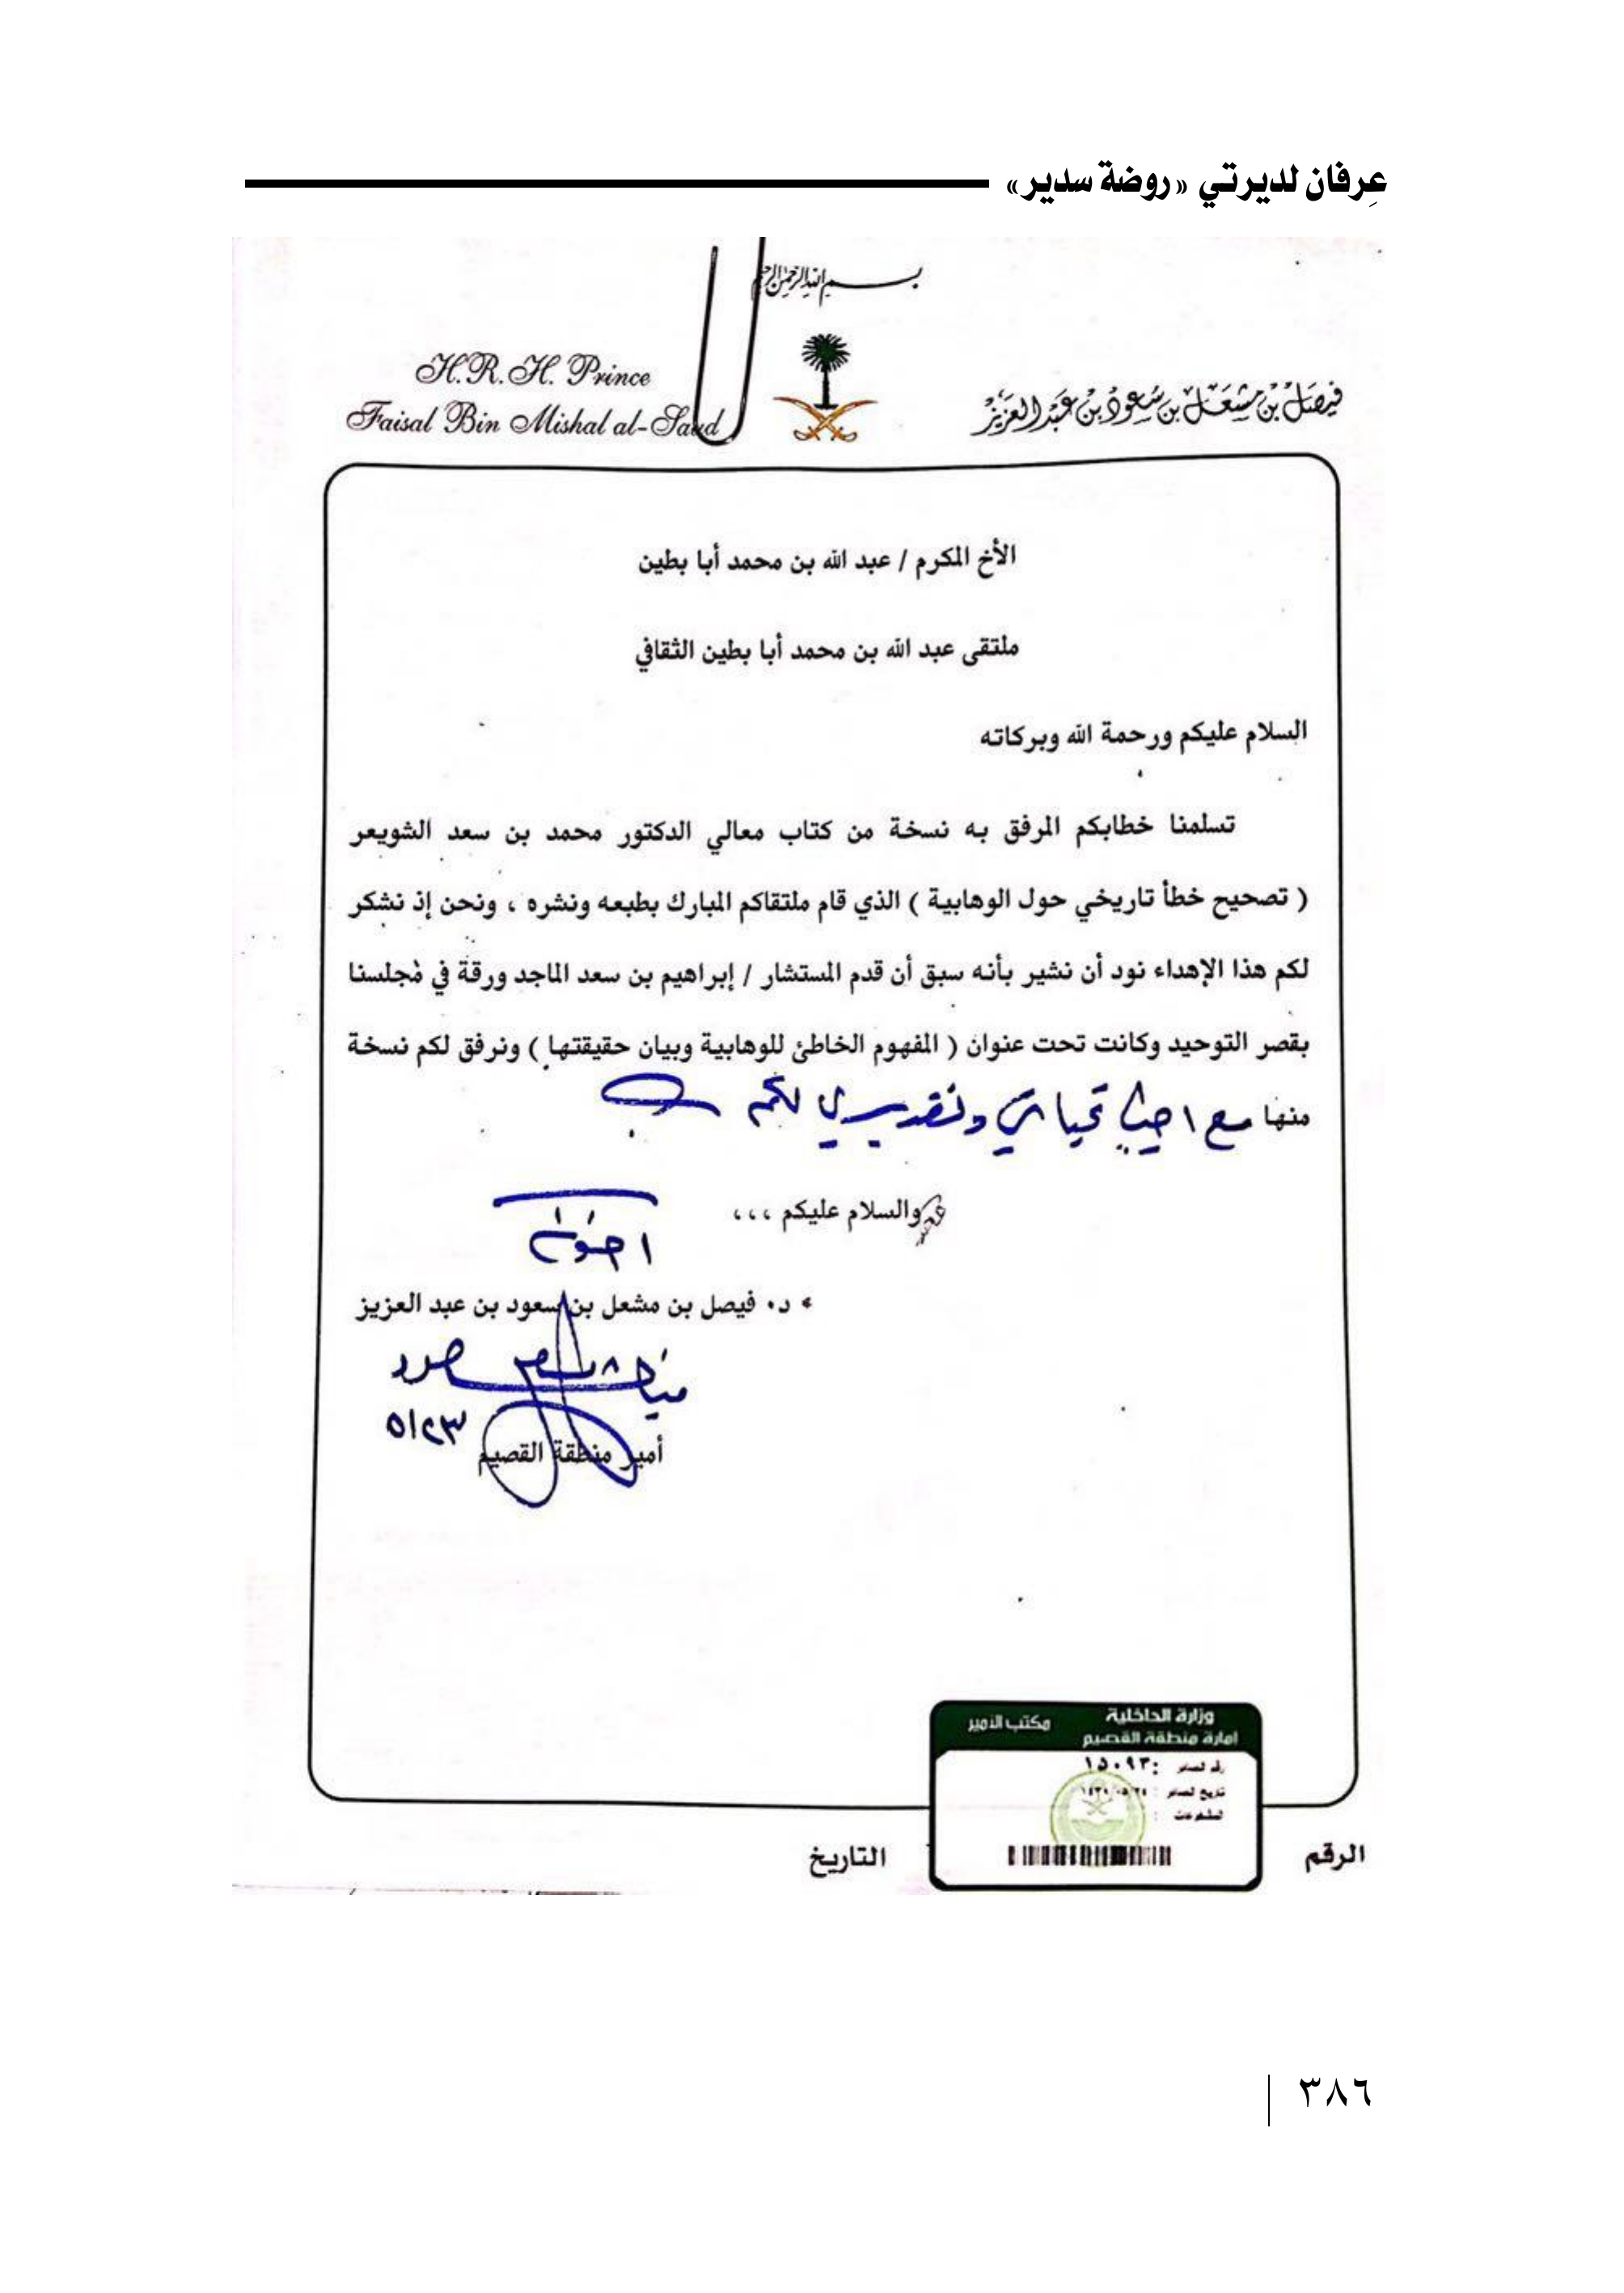 عِرفان لديرتي «روضة سدير»
بسم الله الرحمن الرحيم
H.R.H. Prince
Faisal Bin Mishal al-Saud
فيصل بن مشعل بن سعود بن عبد العزيز
الأخ المكرم / عبد الله بن محمد أبا بطين
ملتقى عبد الله بن محمد أبا بطين الثقافي
السلام عليكم ورحمة الله وبركاته
تسلمنا خطابكم المرفق به نسخة من كتاب معالي الدكتور محمد بن سعد الشويعر
( تصحيح خطأ تاريخي حول الوهابية ) الذي قام ملتقاكم المبارك بطبعه ونشره ، ونحن إذ نشكر
لكم هذا الإهداء نود أن نشير بأنه سبق أن قدم المستشار / إبراهيم بن سعد الماجد ورقة في مجلسنا
بقصر التوحيد وكانت تحت عنوان ( المفهوم الخاطئ للوهابية وبيان حقيقتها ) ونرفق لكم نسخة
منها مع اطيب تحياتي وتقديري لكم
والسلام عليكم ،،،
اخوكم
د. فيصل بن مشعل بن سعود بن عبد العزيز
٥/٢٣
أمير منطقة القصيم
وزارة الداخلية
امارة منطقة القصيم
مكتب الأمير
رقم الصادر : ١٥٠٩٣
تاريخ الصادر :
المشفوعات :
الرقم
التاريخ
٣٨٦